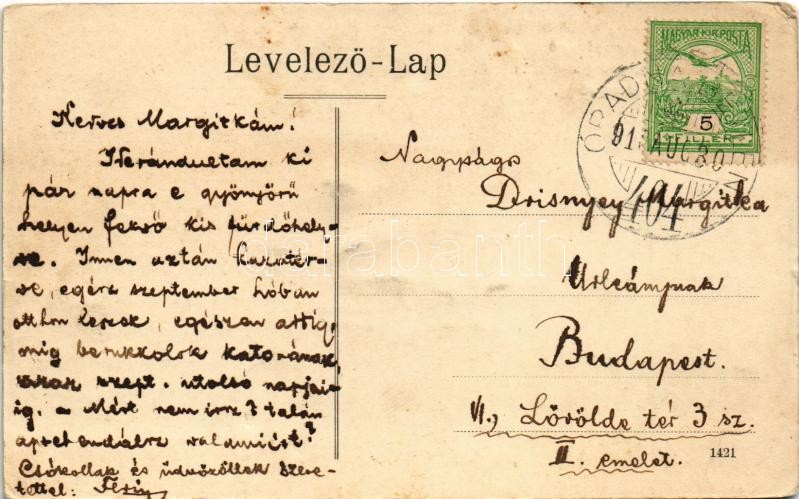 Levelező-Lap
MAGYAR KIR. POSTA
5
FILLÉR
ÓRADNA
91 AUG 30
404
Kedves Margitkám!
Kirándultam ki
pár napra e gyönyörű
helyen fekvő kis fürdőhely-
re. Innen aztán hazatér-
ve, egész szeptember hóban
otthon leszek, egészen addig,
míg berukkolok katonának,
azaz szept. utolsó napjai-
ig. Miért nem írsz? talán
aprehendálsz valamiért?
Csókollak és üdvözöllek szere-
tettel:
Nagyságos
Drisnyey Margitka
Urleánynak
Budapest.
VI., Lövölde tér 3 sz.
II. emelet.
1421
darabanth